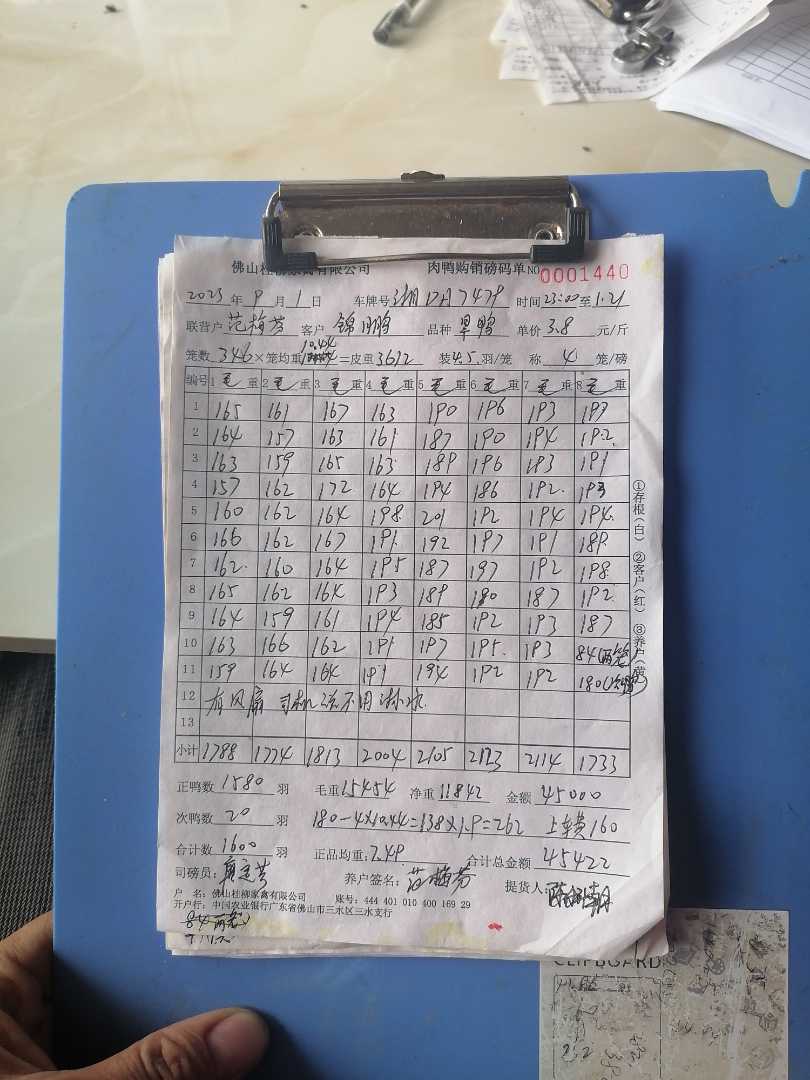 佛山桂柳家禽有限公司 肉鸭购销磅码单 NO 0001440
2023 年 9 月 1 日 车牌号 湘DA7479 时间 23:00 至 1:21
联营户 范梅芬 客户 锦鹏 品种 旱鸭 单价 3.8 元/斤
笼数 346 ×笼均重 10.44 =皮重 3612 装 4.5 羽/笼 称 4 笼/磅
编号 1 毛 重 2 毛 重 3 毛 重 4 毛 重 5 毛 重 6 毛 重 7 毛 重 8 毛 重
1 165 161 167 163 190 196 193 197
2 164 157 163 161 187 190 194 192
3 163 159 165 163 189 196 193 191
4 157 162 172 164 194 186 192 193
5 160 162 164 198 201 192 194 194
6 166 162 167 191 192 197 191 189
7 162 160 164 195 187 197 192 198
8 165 162 164 193 189 180 187 192
9 164 159 161 194 185 192 193 187
10 163 166 162 191 197 195 193 84(两笼)
11 159 164 164 191 194 192 192 180
12 有风扇 司机说不用淋水
13
小计 1788 1774 1813 2004 2105 2113 2114 1733
正鸭数 1580 羽 毛重 15454 净重 11842 金额 45000
次鸭数 20 羽 180-4×10.44=138×1.9=262 上车费160
合计数 1600 羽 正品均重: 7.49 合计总金额 45422
司磅员: 养户签名: 范梅芬 提货人:
户 名: 佛山桂柳家禽有限公司 账号: 444 401 010 400 169 29
开户行: 中国农业银行广东省佛山市三水区三水支行
84(两笼)
①存根(白) ②客户(红) ③养户(黄)
CLIPBOARD